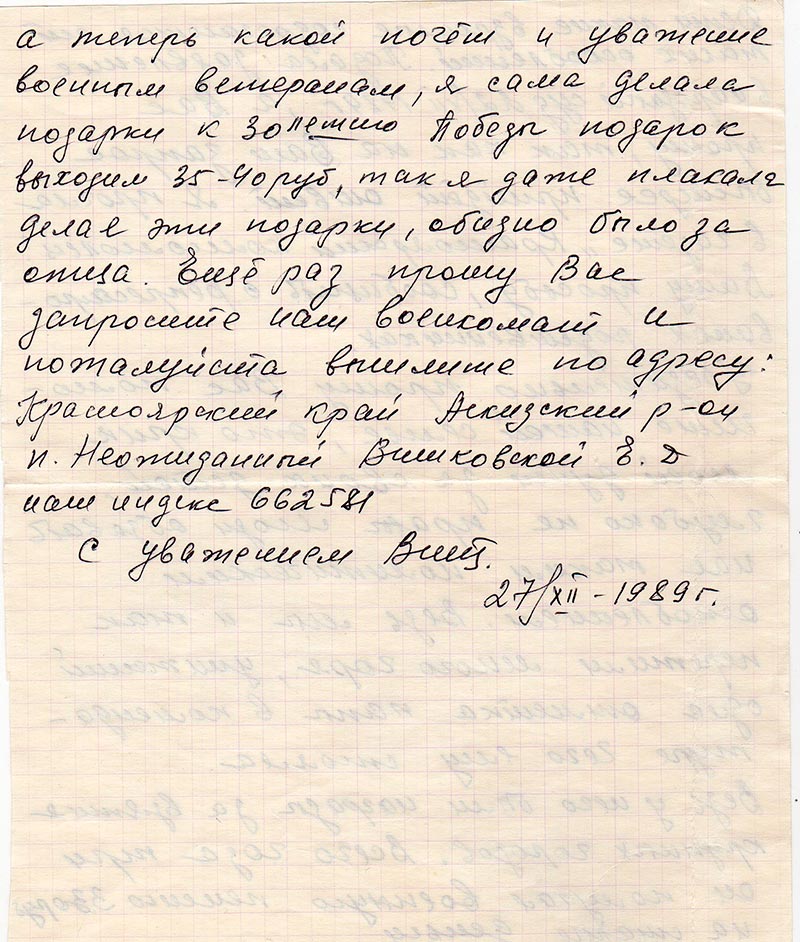 а теперь какой почёт и уважение
военным ветеранам, я сама делала
подарки к 30летию Победы подарок
выходил 35-40 руб, так я даже плакала
делае эти подарки, обидно было за
отца. Ещё раз прошу Вас
запросите наш военкомат и
пожалуйста вышлите по адресу:
Красноярский край Аскизский р-он
п. Неожиданный Вишковской Е. Д
наш индекс 662581
С уважением
27/XII - 1989г.